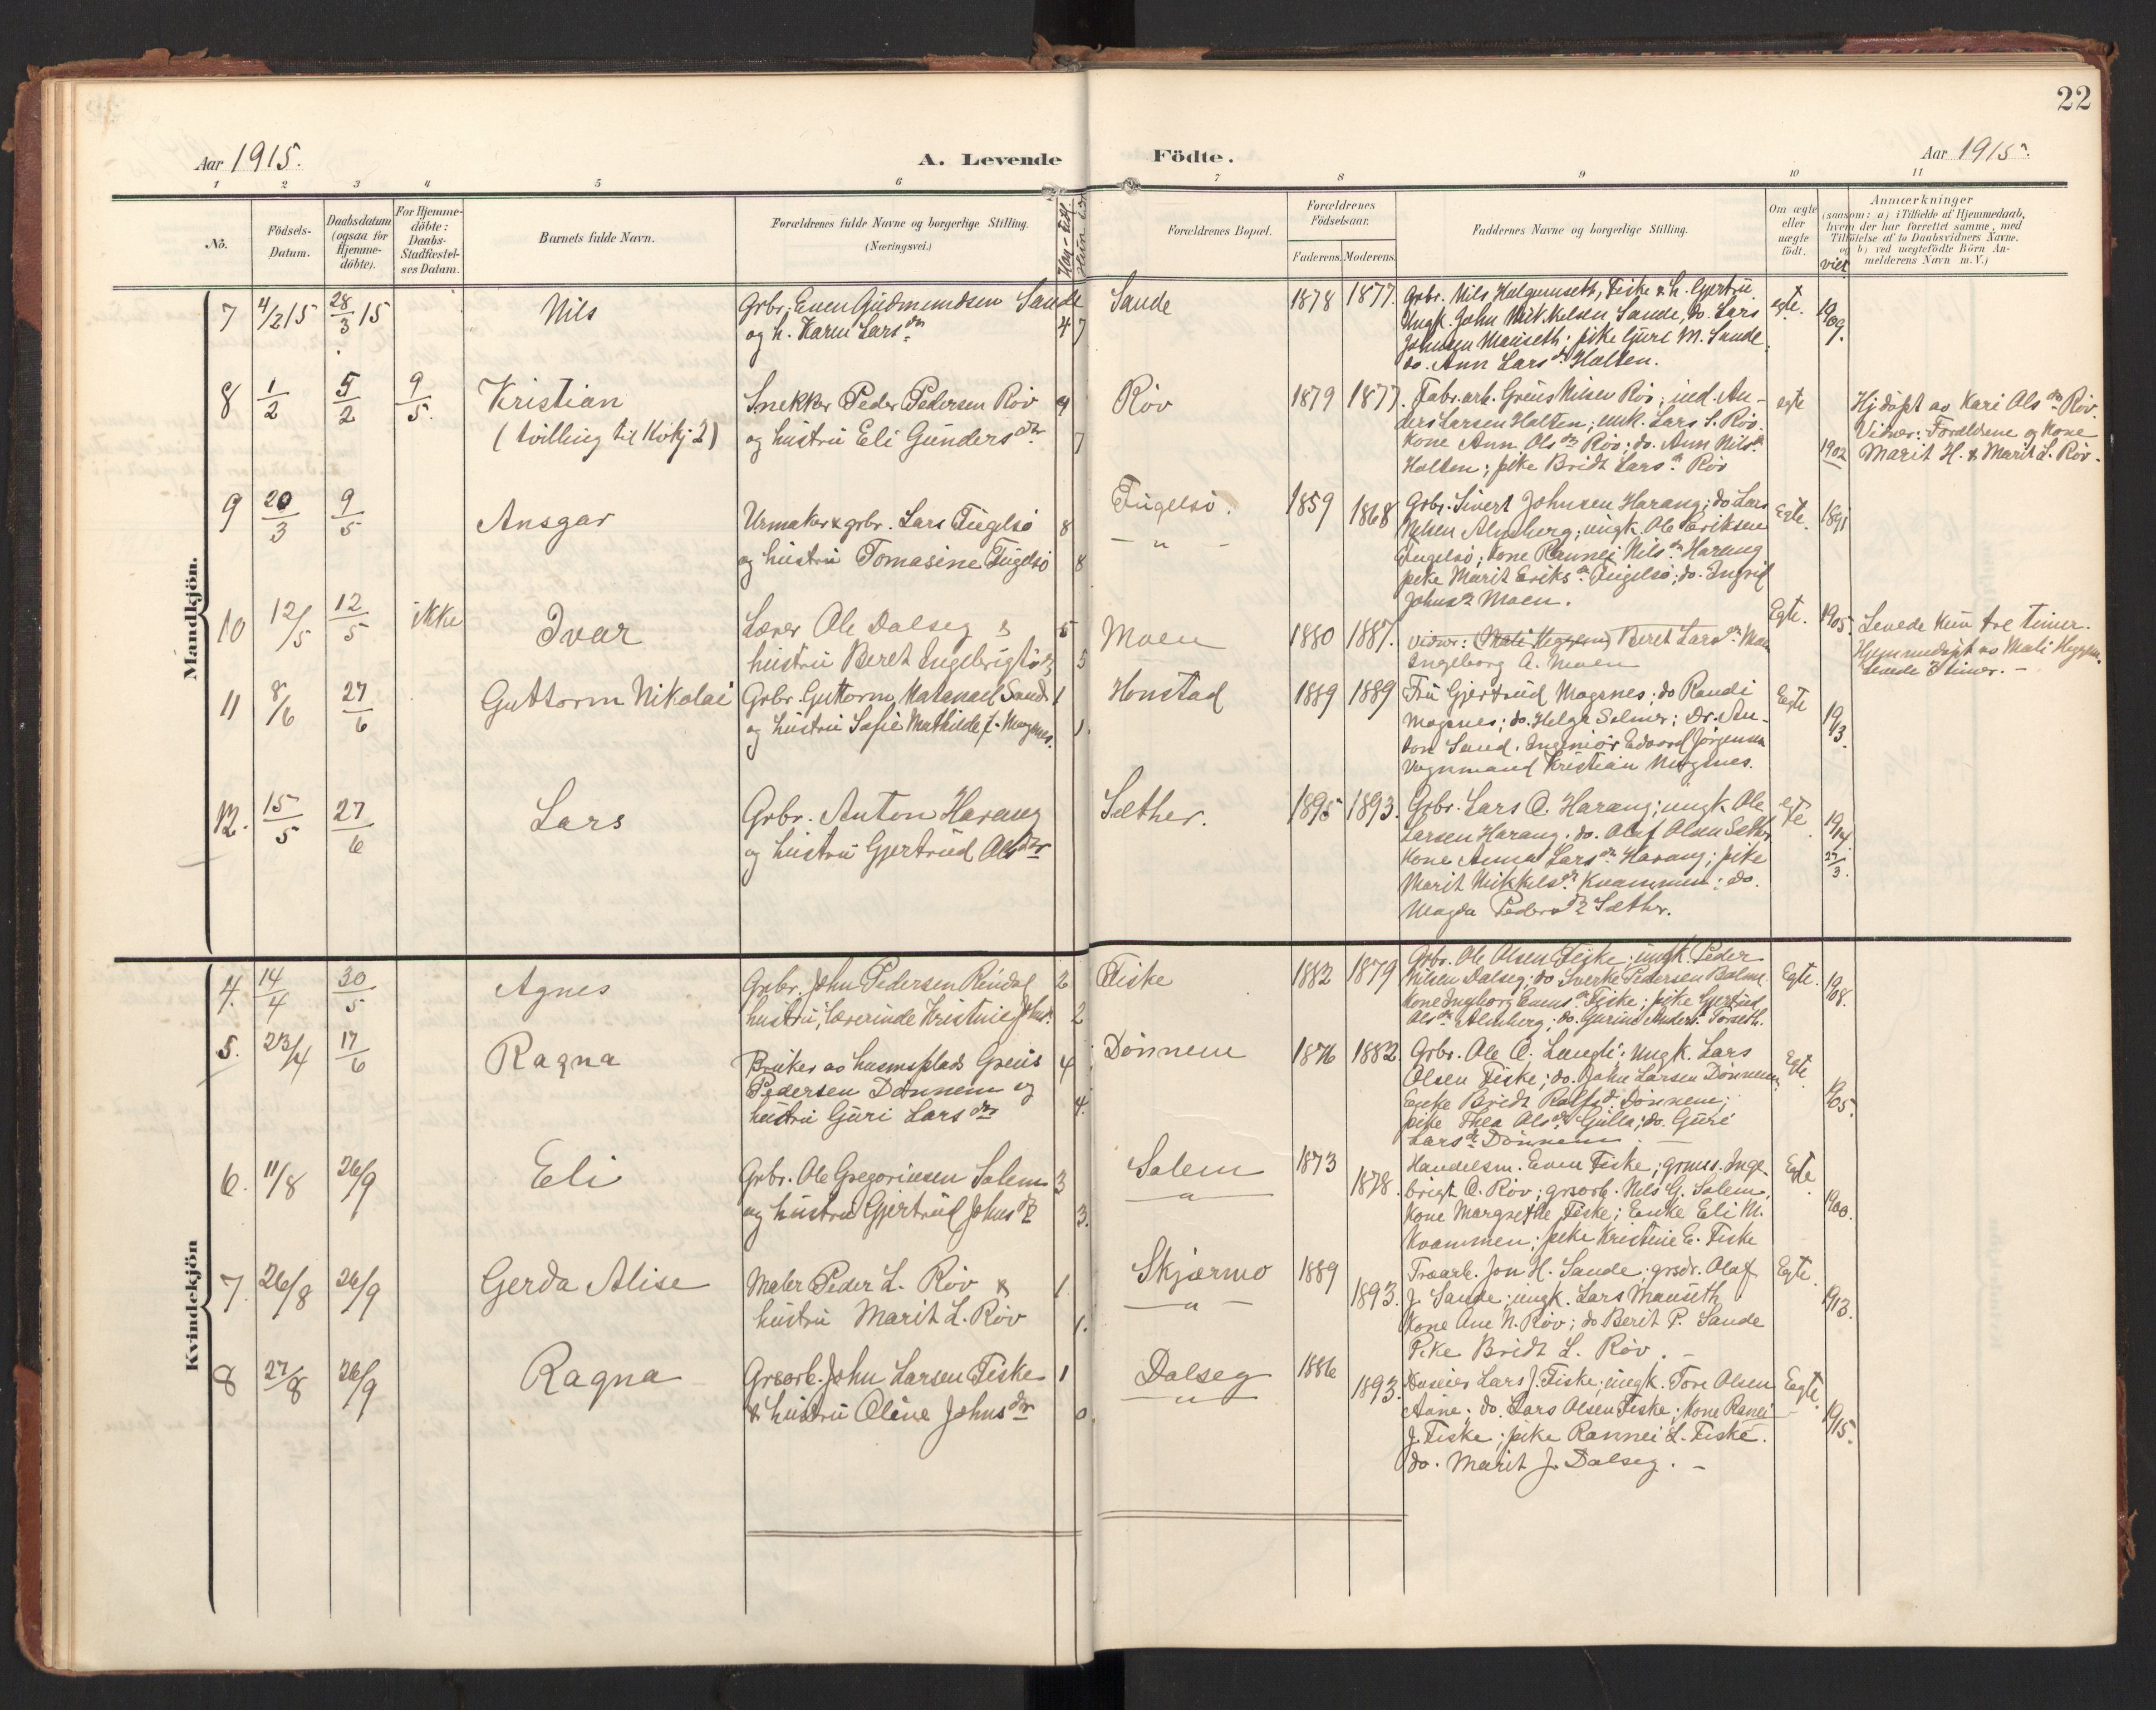 22
Aar 1915.
A. Levende Födte.
Aar 1915.
1 2 3 4 5 6 7 8 9 10 11
No.
Födsels-
Datum.
Daabsdatum
(ogsaa for
Hjemme-
döbte).
For Hjemme-
döbte:
Daabs-
Stadfæstel-
ses Datum.
Barnets fulde Navn.
Forældrenes fulde Navne og borgerlige Stilling.
(Næringsvei.)
Forældrenes Bopæl.
Forældrenes
Födselsaar.
Faderens. Moderens.
Faddernes Navne og borgerlige Stilling.
Om ægte
eller
uægte
födt.
viet
Anmærkninger
(saasom: a) i Tilfælde af Hjemmedaab,
hvem der har forrettet samme, med
Tilföielse af to Daabsvidners Navne,
og b) ved uægtefödte Börn An-
melderens Navn m. V.)
Mandkjön.
7 4/2 15 28/3 15
Nils
Grbr. Even Gudmundsen Sande
og h. Karen Larsdtr
4 7
Sande
1878 1877.
Grbr. Nils Halgunseth, Fiske & h. Gjertru.
Ungk. John Mikkelsen Sande, do. Lars
Johnsen Mauseth; pike Guri M. Sande
do. Ann Larsdr Halten.
egte.
1909.
8 1/2 5/2 9/5.
Kristian
(tvilling til Kvkj 2)
Snekker Peder Pedersen Röv
og hustru Eli Gundersdtr
9
7
Röv
1879 1877.
Fabr. arb. Greus Nilsen Röv; ind. An-
ders Larsen Halten; unk. Lars S. Röv.
Kone Ann Olsdr Röv; do. Ann Nilsdr
Halten; pike Bridt Larsdr Röv
egte
1902
Hj döpt av Kari Olsdr Röv.
Vidner: Forældrene og Kone
Marit H. & Marit L. Röv.
9 20/3 9/5
Ansgar
Urmaker & grbr. Lars Fugelsö
og hustru Tomasine Fugelsö
8
8
Fugelsö.
— " —
1859 1868
Grbr. Sivert Johnsen Harang; do Lars
Nilsen Almberg; ungk. Ole Eriksen
Fugelsö; Kone Rannei Nilsdr Harang
pike Marit Eriksdr Fugelsö; do. Ingrid
Johnsdr Moen.
Egte.
1891
10 12/5 12/5 ikke
Ivar
Lærer Ole Dalseg &
hustru Beret Ingebrigtsdr
5
5
Moen
1880 1887.
vidner: Mali Heggem, Beret Larsdr Moen
Ingeborg A. Moen
Egte.
1905.
Levede kun tre timer.
Hjemmedöpt av Mali Heggem.
Levede 3 timer. —
11 8/6 27/6
Guttorm Nikolai
Grbr. Guttorm Natanael Sand
og hustru Sofie Mathilde f. Magsnes.
1
1.
Honstad
1889 1889
Fru Gjertrud Magsnes; do Randi
Magsnes; do. Helga Solmer; Dr. An-
ton Sand. Ingeniör Edvard Jörgensen
Vognmand Kristian Magsnes.
Egte
1913.
12. 15/5 27/6
Lars
Grbr. Anton Harang
og hustru Gjertrud Olsdtr
Sæther.
1895 1893.
Grbr. Lars O. Harang; ungk. Ole
Larsen Harang. do. Olaf Olsen Sæther
Kone Anna Larsdr Harang; pike
Marit Mikkelsdr Kvammen; do.
Magda Pedersdr Sæther.
egte
1914.
27/3.
Kvindekjön
4. 14/4 30/5
Agnes
Grbr. John Pedersen Rindal
hustru, lærerinde Kristine Johnsdr.
2
2
Fiske
1882 1879
Grbr. Ole Olsen Fiske; ungk. Peder
Nilsen Dalseg; do Sverke Pedersen Bolme
Kone Ingeborg Evensdr Fiske; pike Gjertrud
Olsdr Almberg; do. Gurine Andersdr Torseth.
Egte.
1908.
5. 23/4 17/6
Ragna
Bruker av husmsplads Greus
Pedersen Dönnem og
hustru Guri Larsdtr
4
4.
Dönnem
1876 1882
Grbr. Ole O. Lungli; Ungk. Lars
Olsen Fiske; do. John Larsen Dönnem
Enke Bridt Rolfsdr Dönnem;
pike Thea Olsdr Gulla; do. Guri
Larsdr Dönnem. —
Egte.
1905.
6. 11/8 26/9
Eli
Grbr. Ole Gregoriusen Solem
og hustru Gjertrud Johnsdtr
3
3.
Solem
— " —
1873
1878.
Handelsm. Even Fiske; grmes. Inge-
brigt O. Röv; grsarb. Nils G. Solem.
Kone Margrethe Fiske; Enke Eli M.
Kvammen; pike Kristine E. Fiske
Egte.
1900.
7. 26/8 26/9
Gerda Alise
Maler Peder L. Röv &
hustru Marit L. Röv
1.
1.
Skjærmo
— " —
1889
1893.
Træarb. Jon H. Sande; grsdr. Olaf
J. Sande; ungk. Lars Mauseth
Kone Ane N. Röv; do Berit P. Sande
Pike Bridt L. Röv. —
Egte.
1913.
8 27/8 26/9
Ragna
Grsarb. John Larsen Fiske
& hustru Oline Johnsdtr
1
0
Dalseg
— " —
1886
1893.
Huseier Lars J. Fiske; ungk. Tore Olsen
Aune; do. Lars Olsen Fiske; Kone Ranei
J. Fiske; pike Rannei L. Fiske.
do. Marit J. Dalseg. —
Egte.
1915.